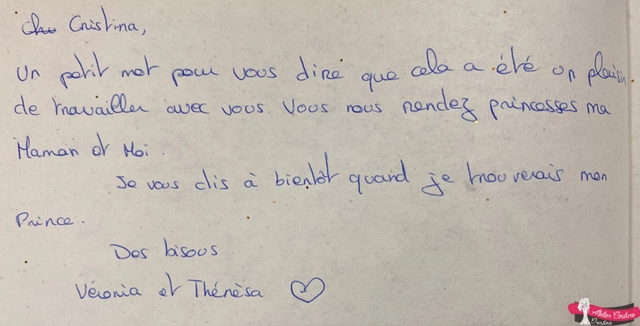 Cher Cristina,
Un petit mot pour vous dire que cela a été un plaisir
de travailler avec vous. Vous nous rendez princesses ma
Maman et Moi.
Je vous dis à bientôt quand je trouverais mon
Prince.
Des bisous
Véronia et Thérèsa
Atelier Couture